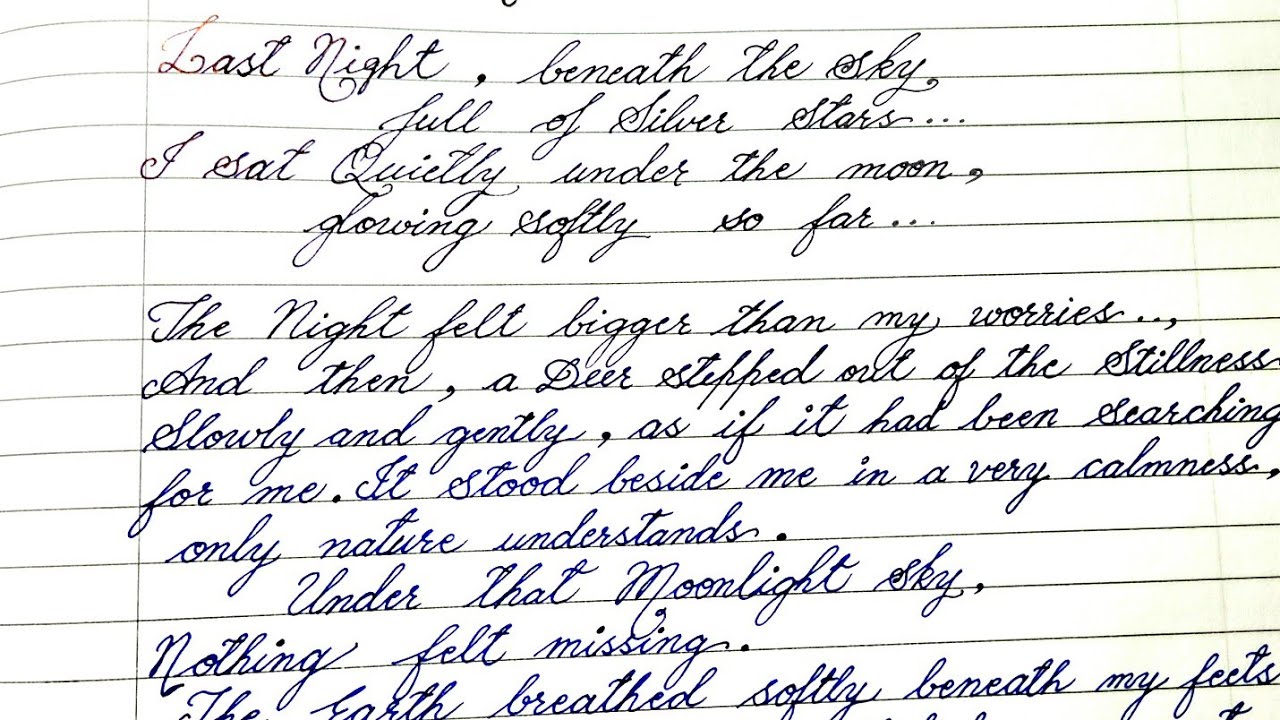 Last Night, beneath the sky,
full of Silver Stars...
I sat Quietly under the moon,
glowing softly so far...
The Night felt bigger than my worries...,
And then, a Deer stepped out of the Stillness
Slowly and gently, as if it had been searching
for me. It stood beside me in a very calmness,
only nature understands.
Under that Moonlight sky,
Nothing felt missing.
The Earth breathed softly beneath my feets